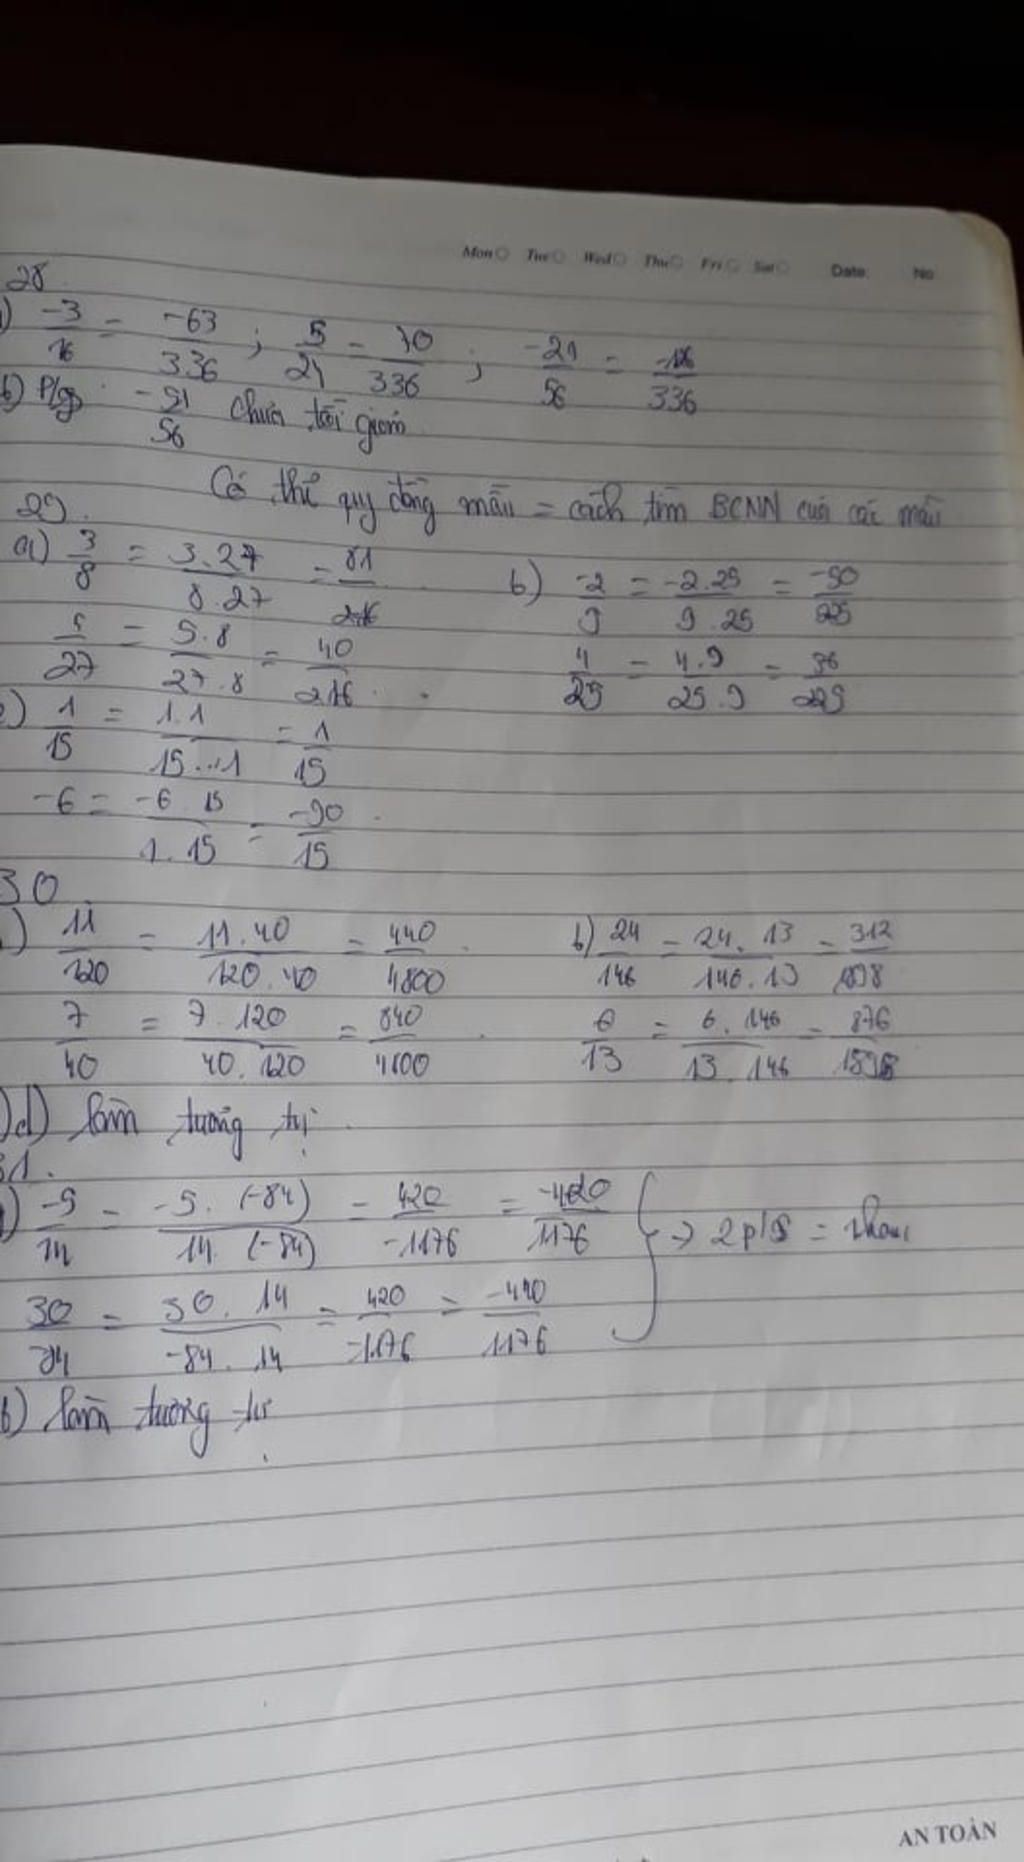 Mon Tue Wed Thu Fri Sat Date: No
28
) -3/16 = -63/336 ; 5/24 = 70/336 ; -21/56 = -126/336
b) P/s -21/56 chưa tối giản
Có thể quy đồng mẫu = cách tìm BCNN của các mẫu
29.
a) 3/8 = 3.27/8.27 = 81/216
b) -2/9 = -2.25/9.25 = -50/225
5/27 = 5.8/27.8 = 40/216
4/25 = 4.9/25.9 = 36/225
) 1/15 = 1.1/15.1 = 1/15
-6 = -6.15/1.15 = -90/15
30
) 11/120 = 11.40/120.40 = 440/4800
b) 24/146 = 24.13/146.13 = 312/1898
7/40 = 7.120/40.120 = 840/4800
6/13 = 6.146/13.146 = 876/1898
)d) làm tương tự
31.
) -5/14 = -5.(-84)/14.(-84) = 420/-1176 = -420/1176
→ 2 p/s = nhau
30/84 = 30.14/-84.14 = 420/-1176 = -420/1176
b) làm tương tự
AN TOÀN